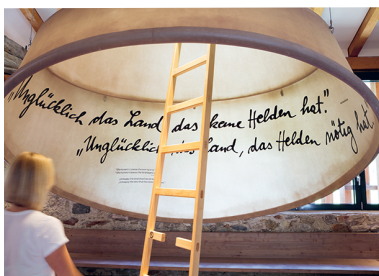 „Unglücklich das Land, das keine Helden hat“. –
„Unglücklich das Land, das Helden nötig hat“.